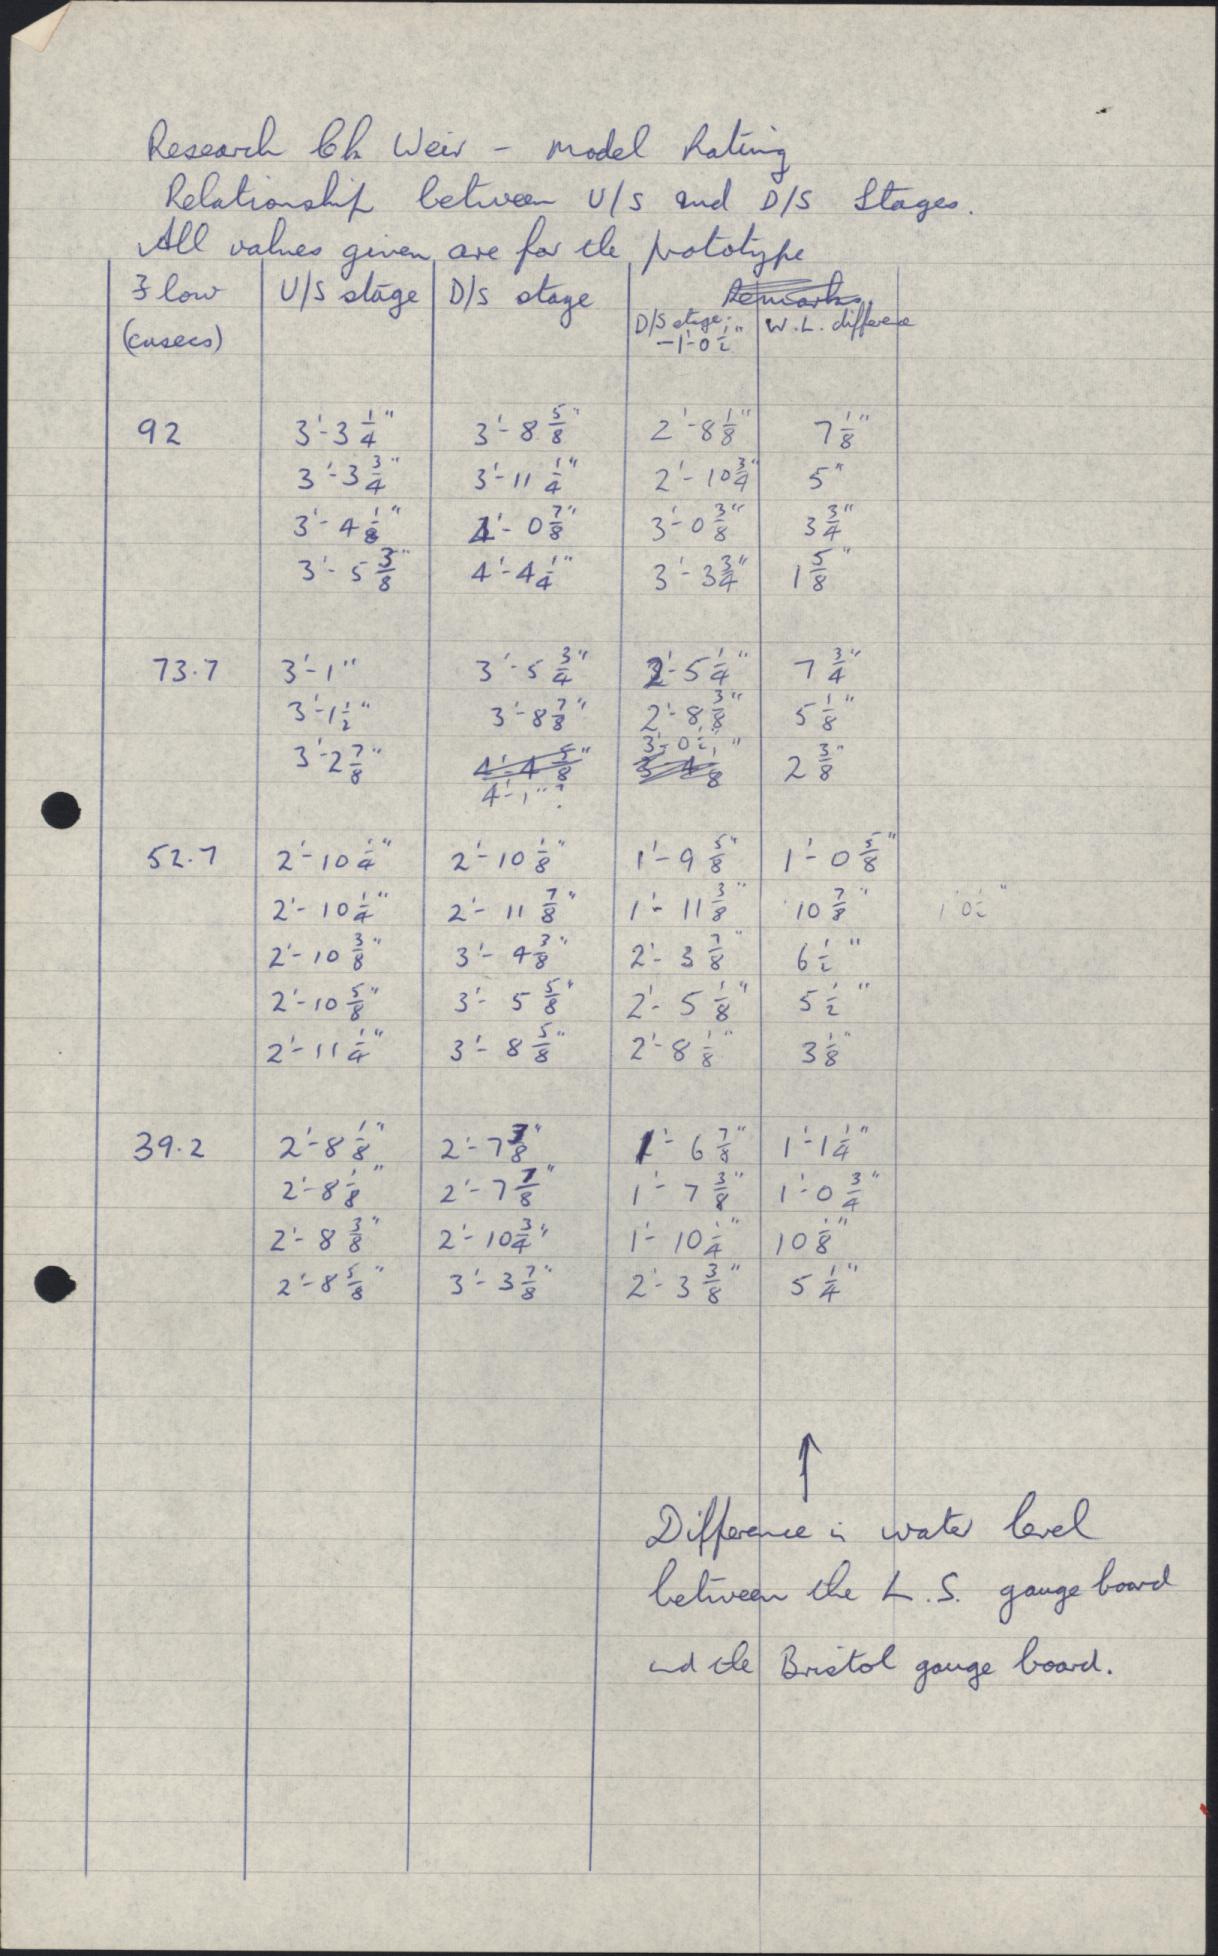 Research Ck Weir - Model Rating
Relationship between U/S and D/S Stages.
All values given are for the prototype
Flow (cusecs) U/S stage D/S stage Remarks
D/S stage - 1'-0 1/2" W.L. difference
92 3'-3 1/4" 3'-8 5/8" 2'-8 1/8" 7 1/8"
3'-3 3/4" 3'-11 1/4" 2'-10 3/4" 5"
3'-4 1/8" 4'-0 7/8" 3'-0 3/8" 3 3/4"
3'-5 3/8" 4'-4 1/4" 3'-3 3/4" 1 5/8"
73.7 3'-1" 3'-5 3/4" 2'-5 1/4" 7 3/4"
3'-1 1/2" 3'-8 7/8" 2'-8 3/8" 5 1/8"
3'-2 7/8" 4'-1"? 3'-0 1/2" 2 3/8"
52.7 2'-10 1/4" 2'-10 1/8" 1'-9 5/8" 1'-0 5/8"
2'-10 1/4" 2'-11 7/8" 1'-11 3/8" 10 7/8" 1'0 1/2"
2'-10 3/8" 3'-4 3/8" 2'-3 7/8" 6 1/2"
2'-10 5/8" 3'-5 5/8" 2'-5 1/8" 5 1/2"
2'-11 1/4" 3'-8 5/8" 2'-8 1/8" 3 1/8"
39.2 2'-8 1/8" 2'-7 3/8" 1'-6 7/8" 1'-1 1/4"
2'-8 1/8" 2'-7 7/8" 1'-7 3/8" 1'-0 3/4"
2'-8 3/8" 2'-10 3/4" 1'-10 1/4" 10 1/8"
2'-8 5/8" 3'-3 7/8" 2'-3 3/8" 5 1/4"
↑
Difference in water level
between the L.S. gauge board
and the Bristol gauge board.